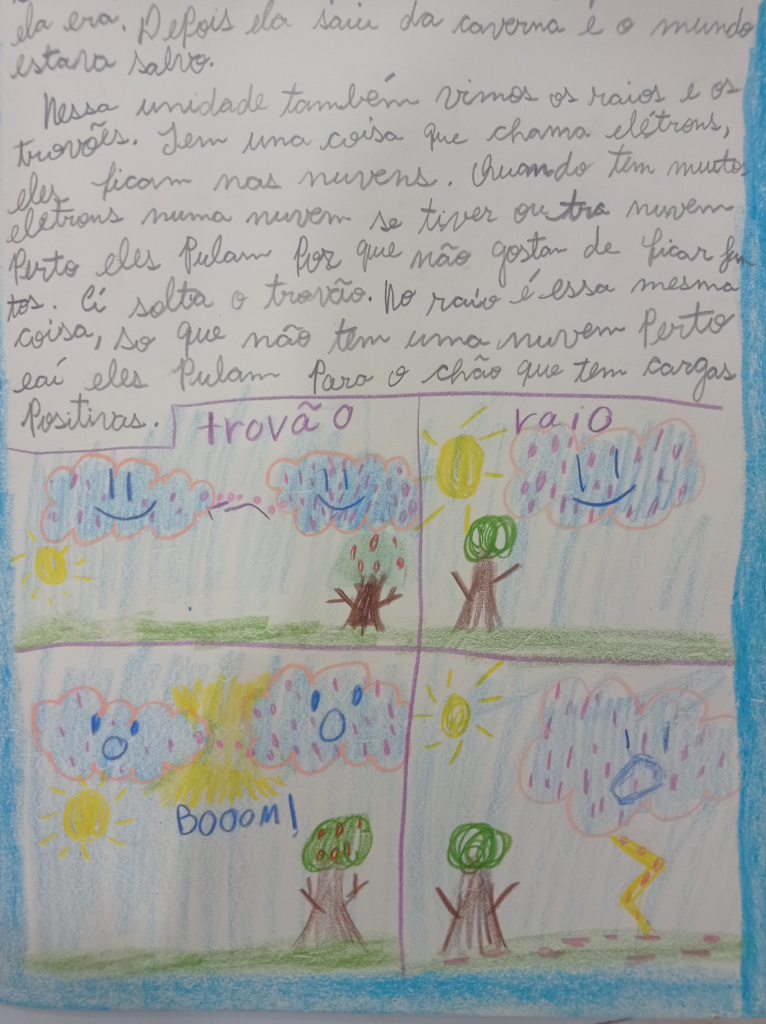 ela era. Depois ela saiu da caverna e o mundo
estava salvo.
Nessa unidade também vimos os raios e os
trovões. Tem uma coisa que chama elétrons,
eles ficam nas nuvens. Quando tem muitos
elétrons numa nuvem se tiver outra nuvem
Perto eles Pulam Por que não gostan de ficar jun
tos. Ci solta o trovão. No raio é essa mesma
coisa, so que não tem uma nuvem Perto
eaí eles Pulam Para o chão que tem cargas
Positivas.
trovão
raio
BOOOM!